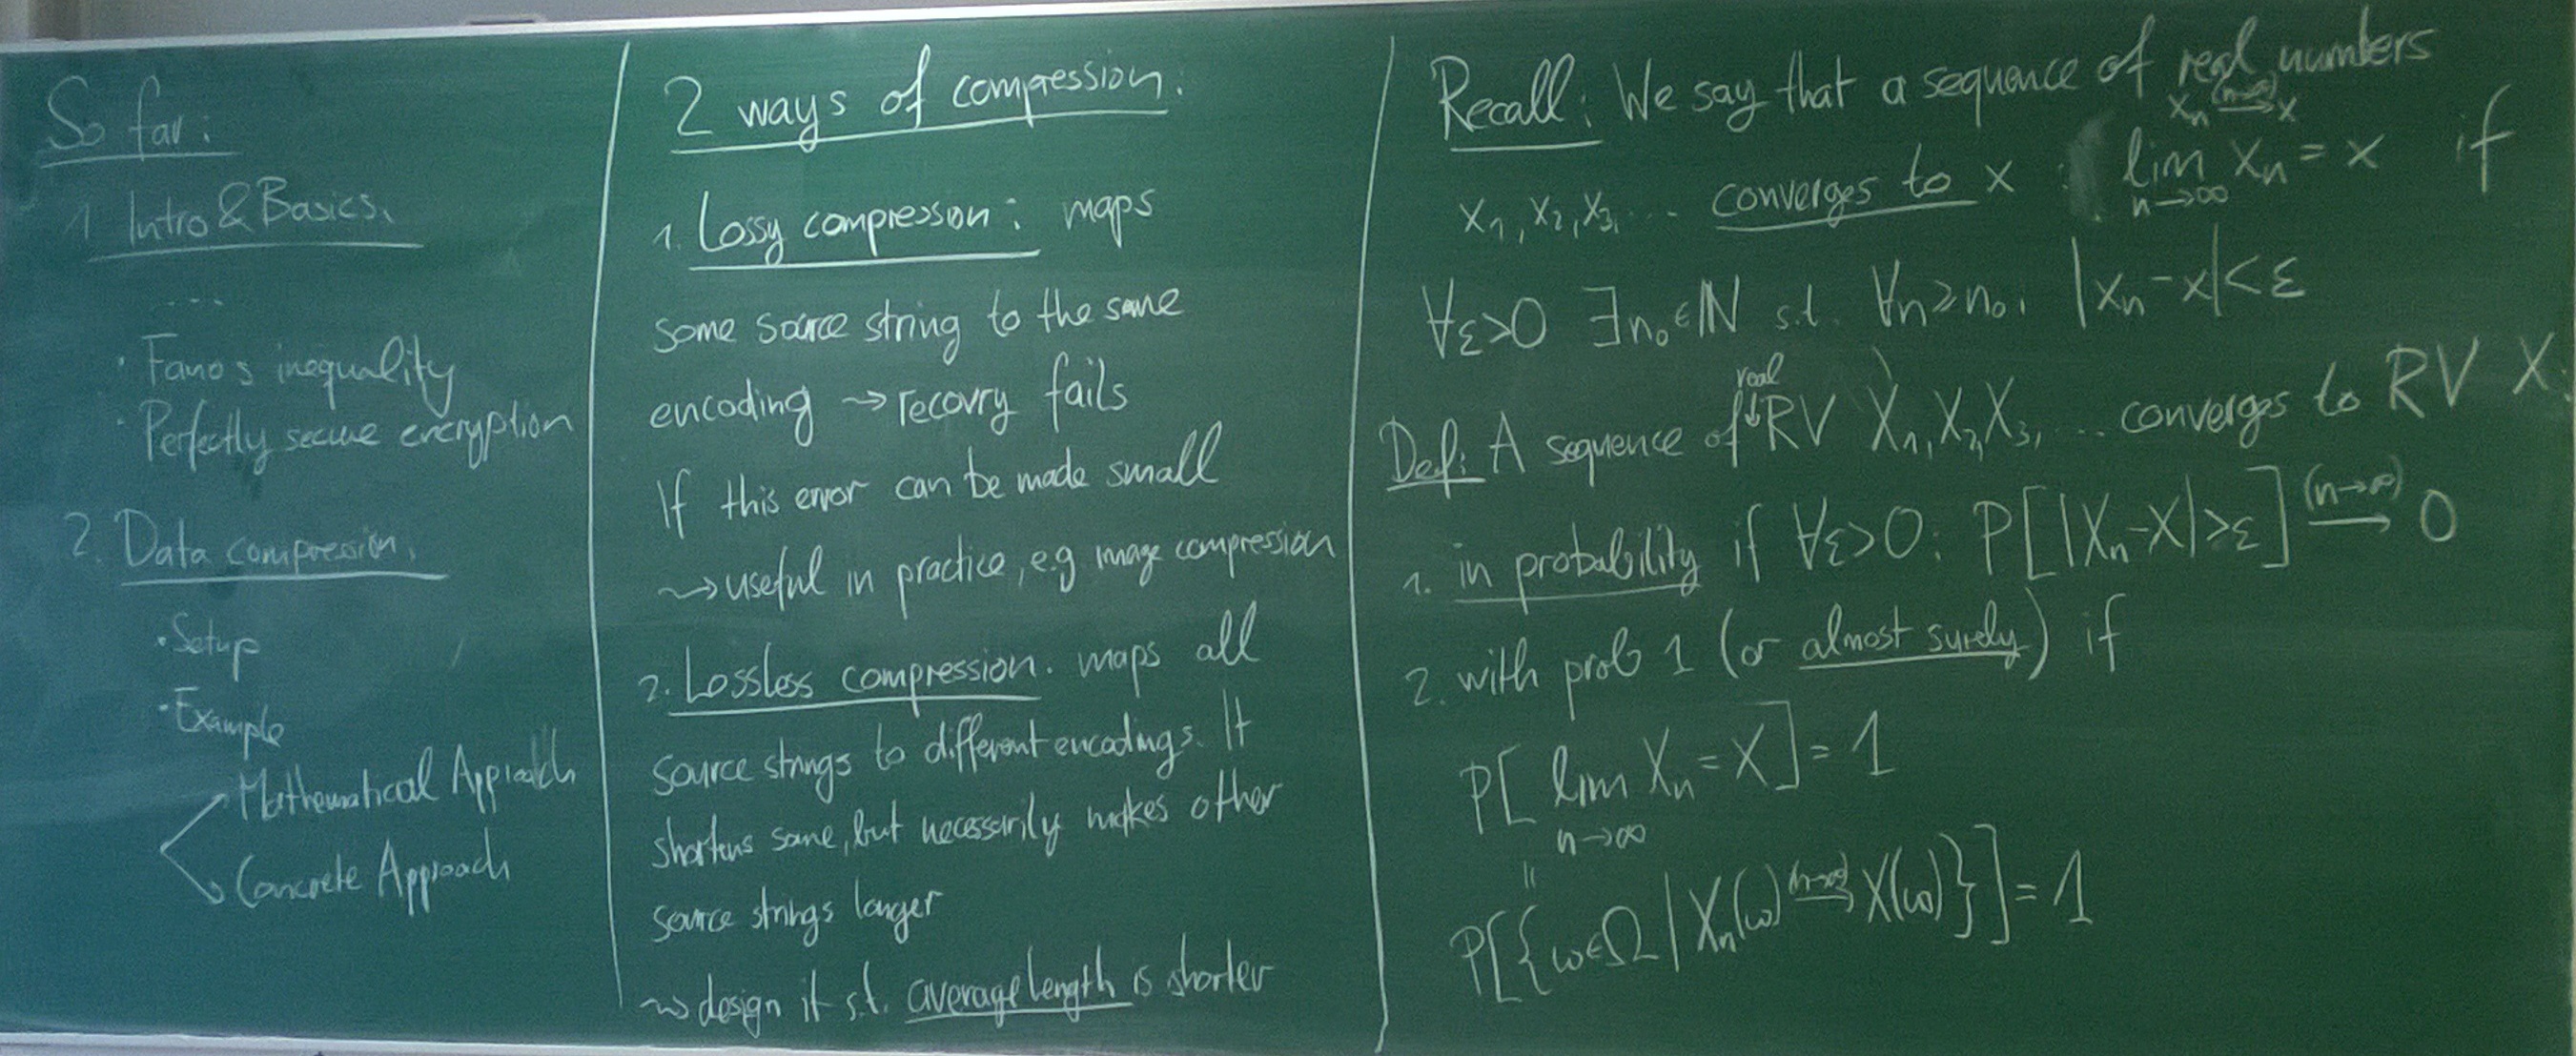 So far:
1 Intro & Basics.
....
· Fano's inequality
· Perfectly secure encryption
2. Data compression.
· Setup
· Example
Mathematical Approach
Concrete Approach
2 ways of compression:
1. Lossy compression: maps
some source string to the same
encoding ⇝ recovry fails
If this error can be made small
⇝ useful in practice, e.g image compression
2. Lossless compression. maps all
source strings to different encodings. It
shortens some, but necessarily makes other
source strings longer
⇝ design it s.t. average length is shorter
Recall: We say that a sequence of real numbers
xₙ (n→∞)→ x
x₁, x₂, x₃, ... converges to x : lim xₙ = x if
n→∞
∀ε>0 ∃n₀∈ℕ s.t. ∀n≥n₀: |xₙ-x|<ε
real
Def: A sequence of ↓ RV X₁, X₂, X₃, ... converges to RV X.
1. in probability if ∀ε>0: P[|Xₙ-X|>ε] (n→∞)→ 0
2. with prob 1 (or almost surely) if
P[lim Xₙ = X] = 1
n→∞
॥
P[{ω∈Ω | Xₙ(ω) (n→∞)→ X(ω)}] = 1